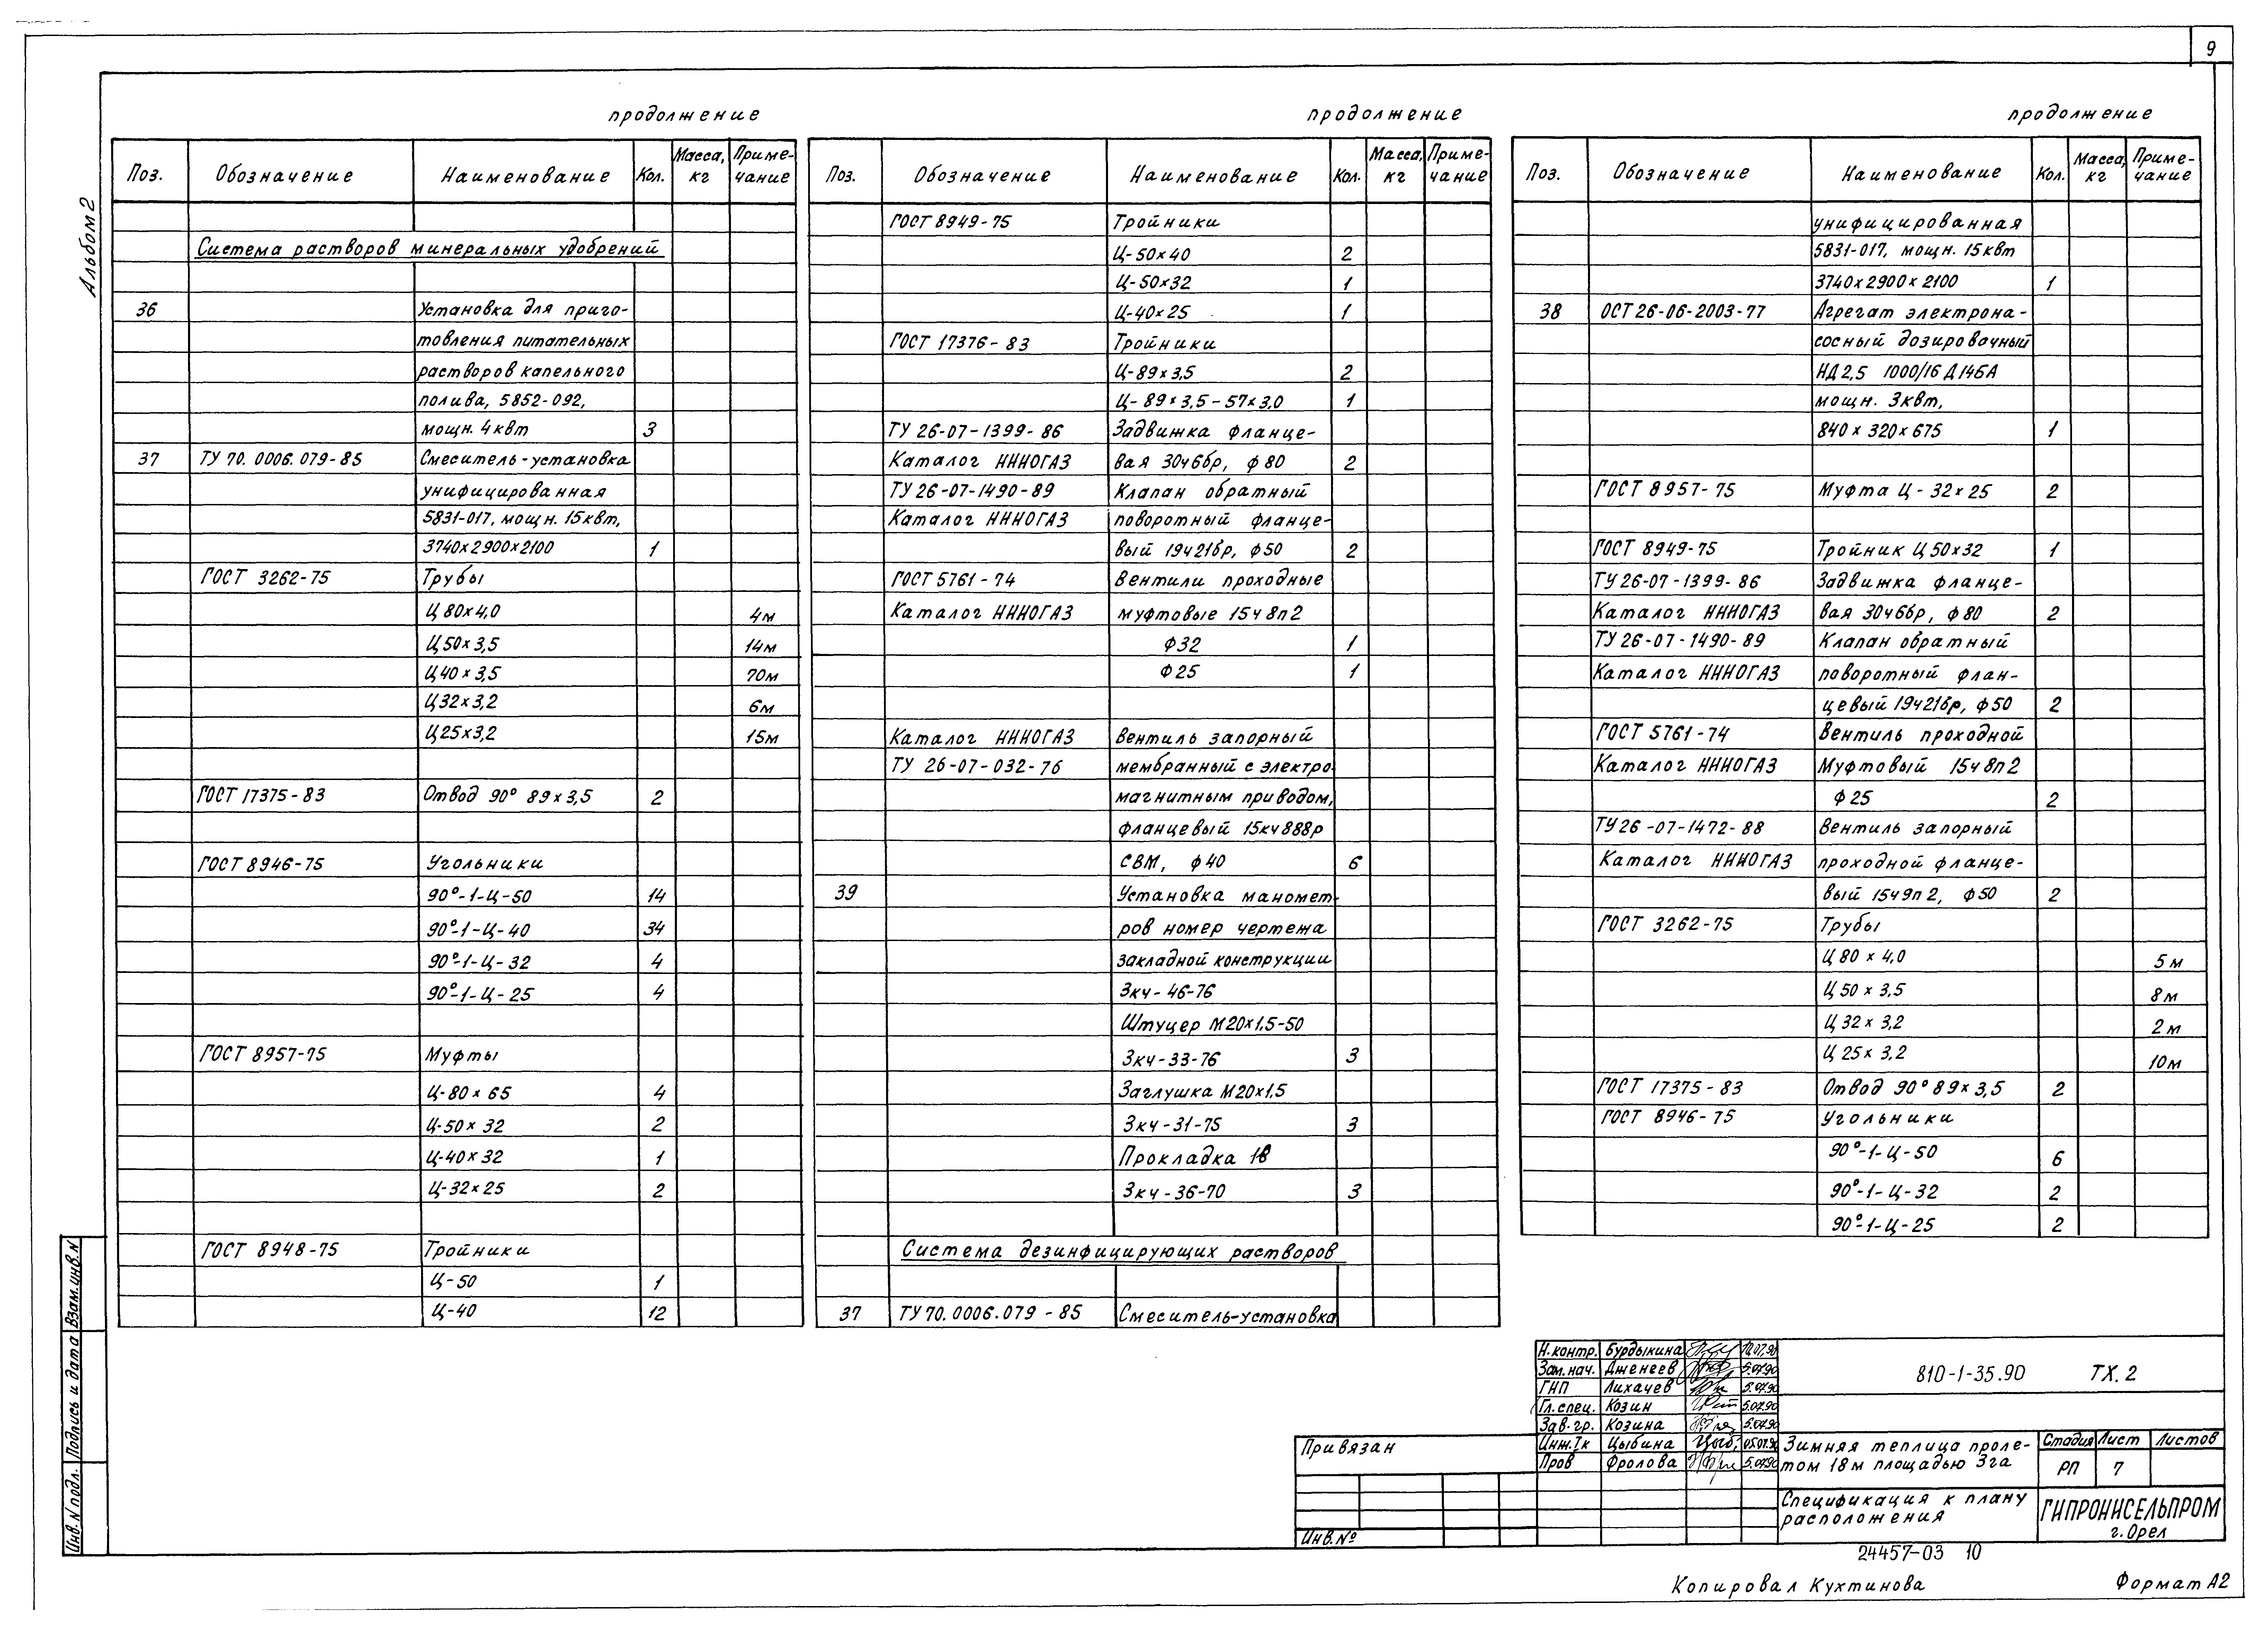 9
Альбом 2
продолжение
Поз. Обозначение Наименование Кол. Масса, кг Примечание
Система растворов минеральных удобрений
36 Установка для приго-
товления питательных
растворов капельного
полива, 5852-092,
мощн. 4квт 3
37 ТУ 70.0006.079-85 Смеситель-установка
унифицированная
5831-017, мощн. 15квт,
3740х2900х2100 1
ГОСТ 3262-75 Трубы
Ц 80х4,0 4м
Ц50х3,5 14м
Ц40х3,5 70м
Ц32х3,2 6м
Ц25х3,2 15м
ГОСТ 17375-83 Отвод 90° 89х3,5 2
ГОСТ 8946-75 Угольники
90°-1-Ц-50 14
90°-1-Ц-40 34
90°-1-Ц-32 4
90°-1-Ц-25 4
ГОСТ 8957-75 Муфты
Ц-80х65 4
Ц-50х32 2
Ц-40х32 1
Ц-32х25 2
ГОСТ 8948-75 Тройники
Ц-50 1
Ц-40 12
продолжение
Поз. Обозначение Наименование Кол. Масса, кг Примечание
ГОСТ 8949-75 Тройники
Ц-50х40 2
Ц-50х32 1
Ц-40х25 1
ГОСТ 17376-83 Тройники
Ц-89х3,5 2
Ц-89х3,5-57х3,0 1
ТУ 26-07-1399-86 Задвижка фланце-
Каталог НИИОГАЗ вая 30ч6бр, ф80 2
ТУ 26-07-1490-89 Клапан обратный
Каталог НИИОГАЗ поворотный фланце-
вый 19ч21бр, ф50 2
ГОСТ 5761-74 Вентили проходные
Каталог НИИОГАЗ муфтовые 15ч8п2
ф32 1
ф25 1
Каталог НИИОГАЗ Вентиль запорный
ТУ 26-07-032-76 мембранный с электро
магнитным приводом,
фланцевый 15кч888р
СВМ, ф40 6
39 Установка маномет-
ров номер чертежа
закладной конструкции
Зкч-46-76
Штуцер М20х1,5-50
Зкч-33-76 3
Заглушка М20х1,5
Зкч-31-75 3
Прокладка 18
Зкч-36-70 3
Система дезинфицирующих растворов
37 ТУ 70.0006.079-85 Смеситель-установка
продолжение
Поз. Обозначение Наименование Кол. Масса, кг Примечание
унифицированная
5831-017, мощн. 15квт
3740х2900х2100 1
38 ОСТ 26-06-2003-77 Агрегат электрона-
сосный дозировочный
НД 2,5 1000/16 Д14бА
мощн. 3квт,
840х320х675 1
ГОСТ 8957-75 Муфта Ц-32х25 2
ГОСТ 8949-75 Тройник Ц50х32 1
ТУ 26-07-1399-86 Задвижка фланце-
Каталог НИИОГАЗ вая 30ч6бр, ф80 2
ТУ 26-07-1490-89 Клапан обратный
Каталог НИИОГАЗ поворотный флан-
цевый 19ч21бр, ф50 2
ГОСТ 5761-74 Вентиль проходной
Каталог НИИОГАЗ Муфтовый 15ч8п2
ф25 2
ТУ 26-07-1472-88 Вентиль запорный
Каталог НИИОГАЗ проходной фланце-
вый 15ч9п2, ф50 2
ГОСТ 3262-75 Трубы
Ц 80х4,0 5м
Ц 50х3,5 8м
Ц 32х3,2 2м
Ц 25х3,2 10м
ГОСТ 17375-83 Отвод 90° 89х3,5 2
ГОСТ 8946-75 Угольники
90°-1-Ц-50 6
90°-1-Ц-32 2
90°-1-Ц-25 2
Инв.N подл. Подпись и дата Взам.инв.N
Н.контр. Бурдыкина 10.07.90
Зам.нач. Дженеев 5.07.90
ГИП Лихачев 5.07.90
Гл.спец. Козин 5.07.90
Зав.гр. Козина 5.07.90
Инж.Iк Цыбина 05.07.90
Пров Фролова 5.07.90
810-1-35.90 ТХ.2
Привязан
Инв.№
Зимняя теплица проле-
том 18м площадью 3га
Стадия Лист Листов
РП 7
Спецификация к плану
расположения
ГИПРОНИСЕЛЬПРОМ
г.Орел
24457-03 10
Копировал Кухтинова Формат А2